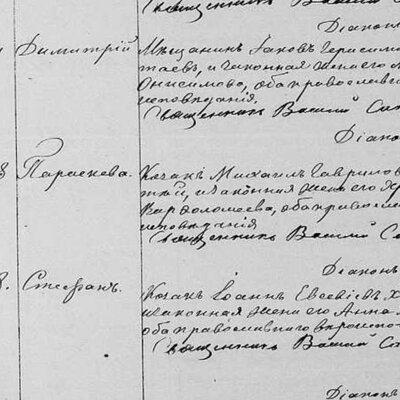 Священникъ Василій
Діаконъ
Димитрій
Мѣщанинъ Іаковъ Герасимо
таевъ, и законная жена его
Онисимова, оба православн
исповѣданія.
Священникъ Василій Си
Діаконъ
8
Параскева.
Козакъ Михаилъ Гаврилов
кій, и законная жена его Х
Варфоломеева, оба правосла
исповѣданія
Священникъ Василій С
Діаконъ
8.
Стефанъ.
Козакъ Іоаннъ Евсевіевъ Х
и законная жена его Анна
оба православнаго вѣроиспо
Священникъ Василій Си
Діаконъ